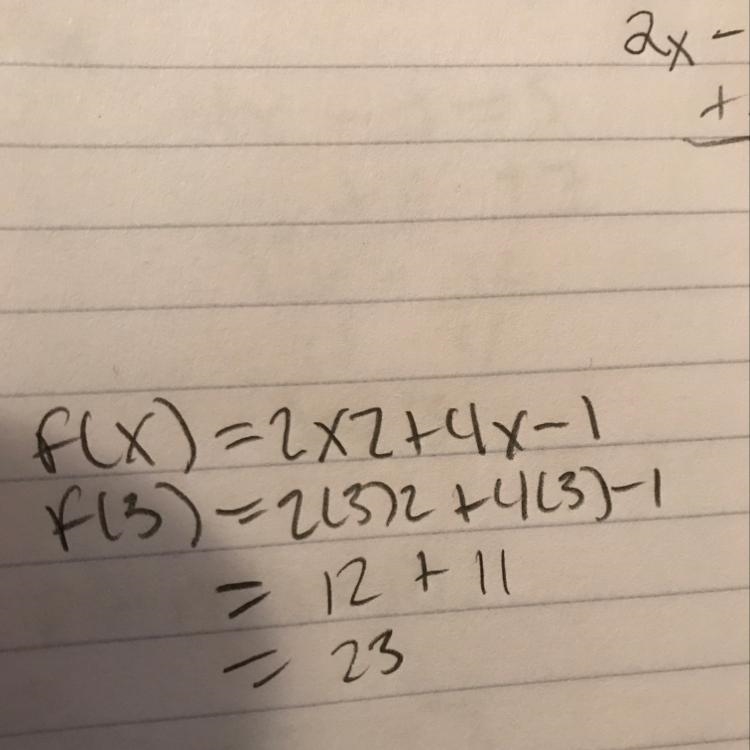 2x -
+
f(x) = 2x2+4x-1
f(3) = 2(3)2 +4(3)-1
= 12 + 11
= 23